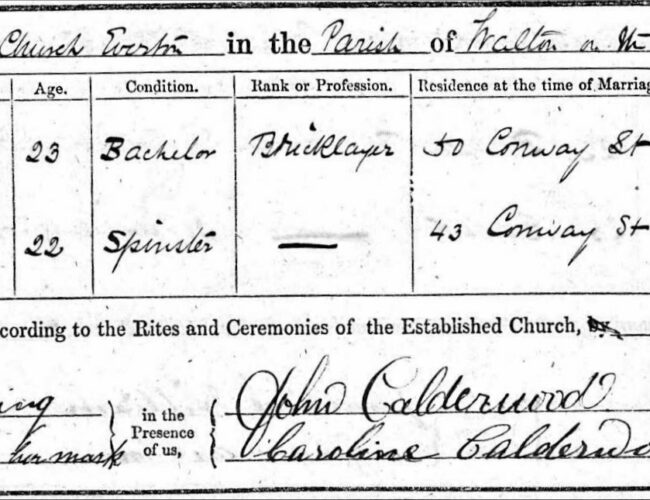 Church Everton in the Parish of Walton on the
Age. Condition. Rank or Profession. Residence at the time of Marriag
23 Bachelor Bricklayer 50 Conway St
22 Spinster 43 Conway St
cording to the Rites and Ceremonies of the Established Church, by
ing in the John Calderwood
Presence
her mark of us, Caroline Calderwo